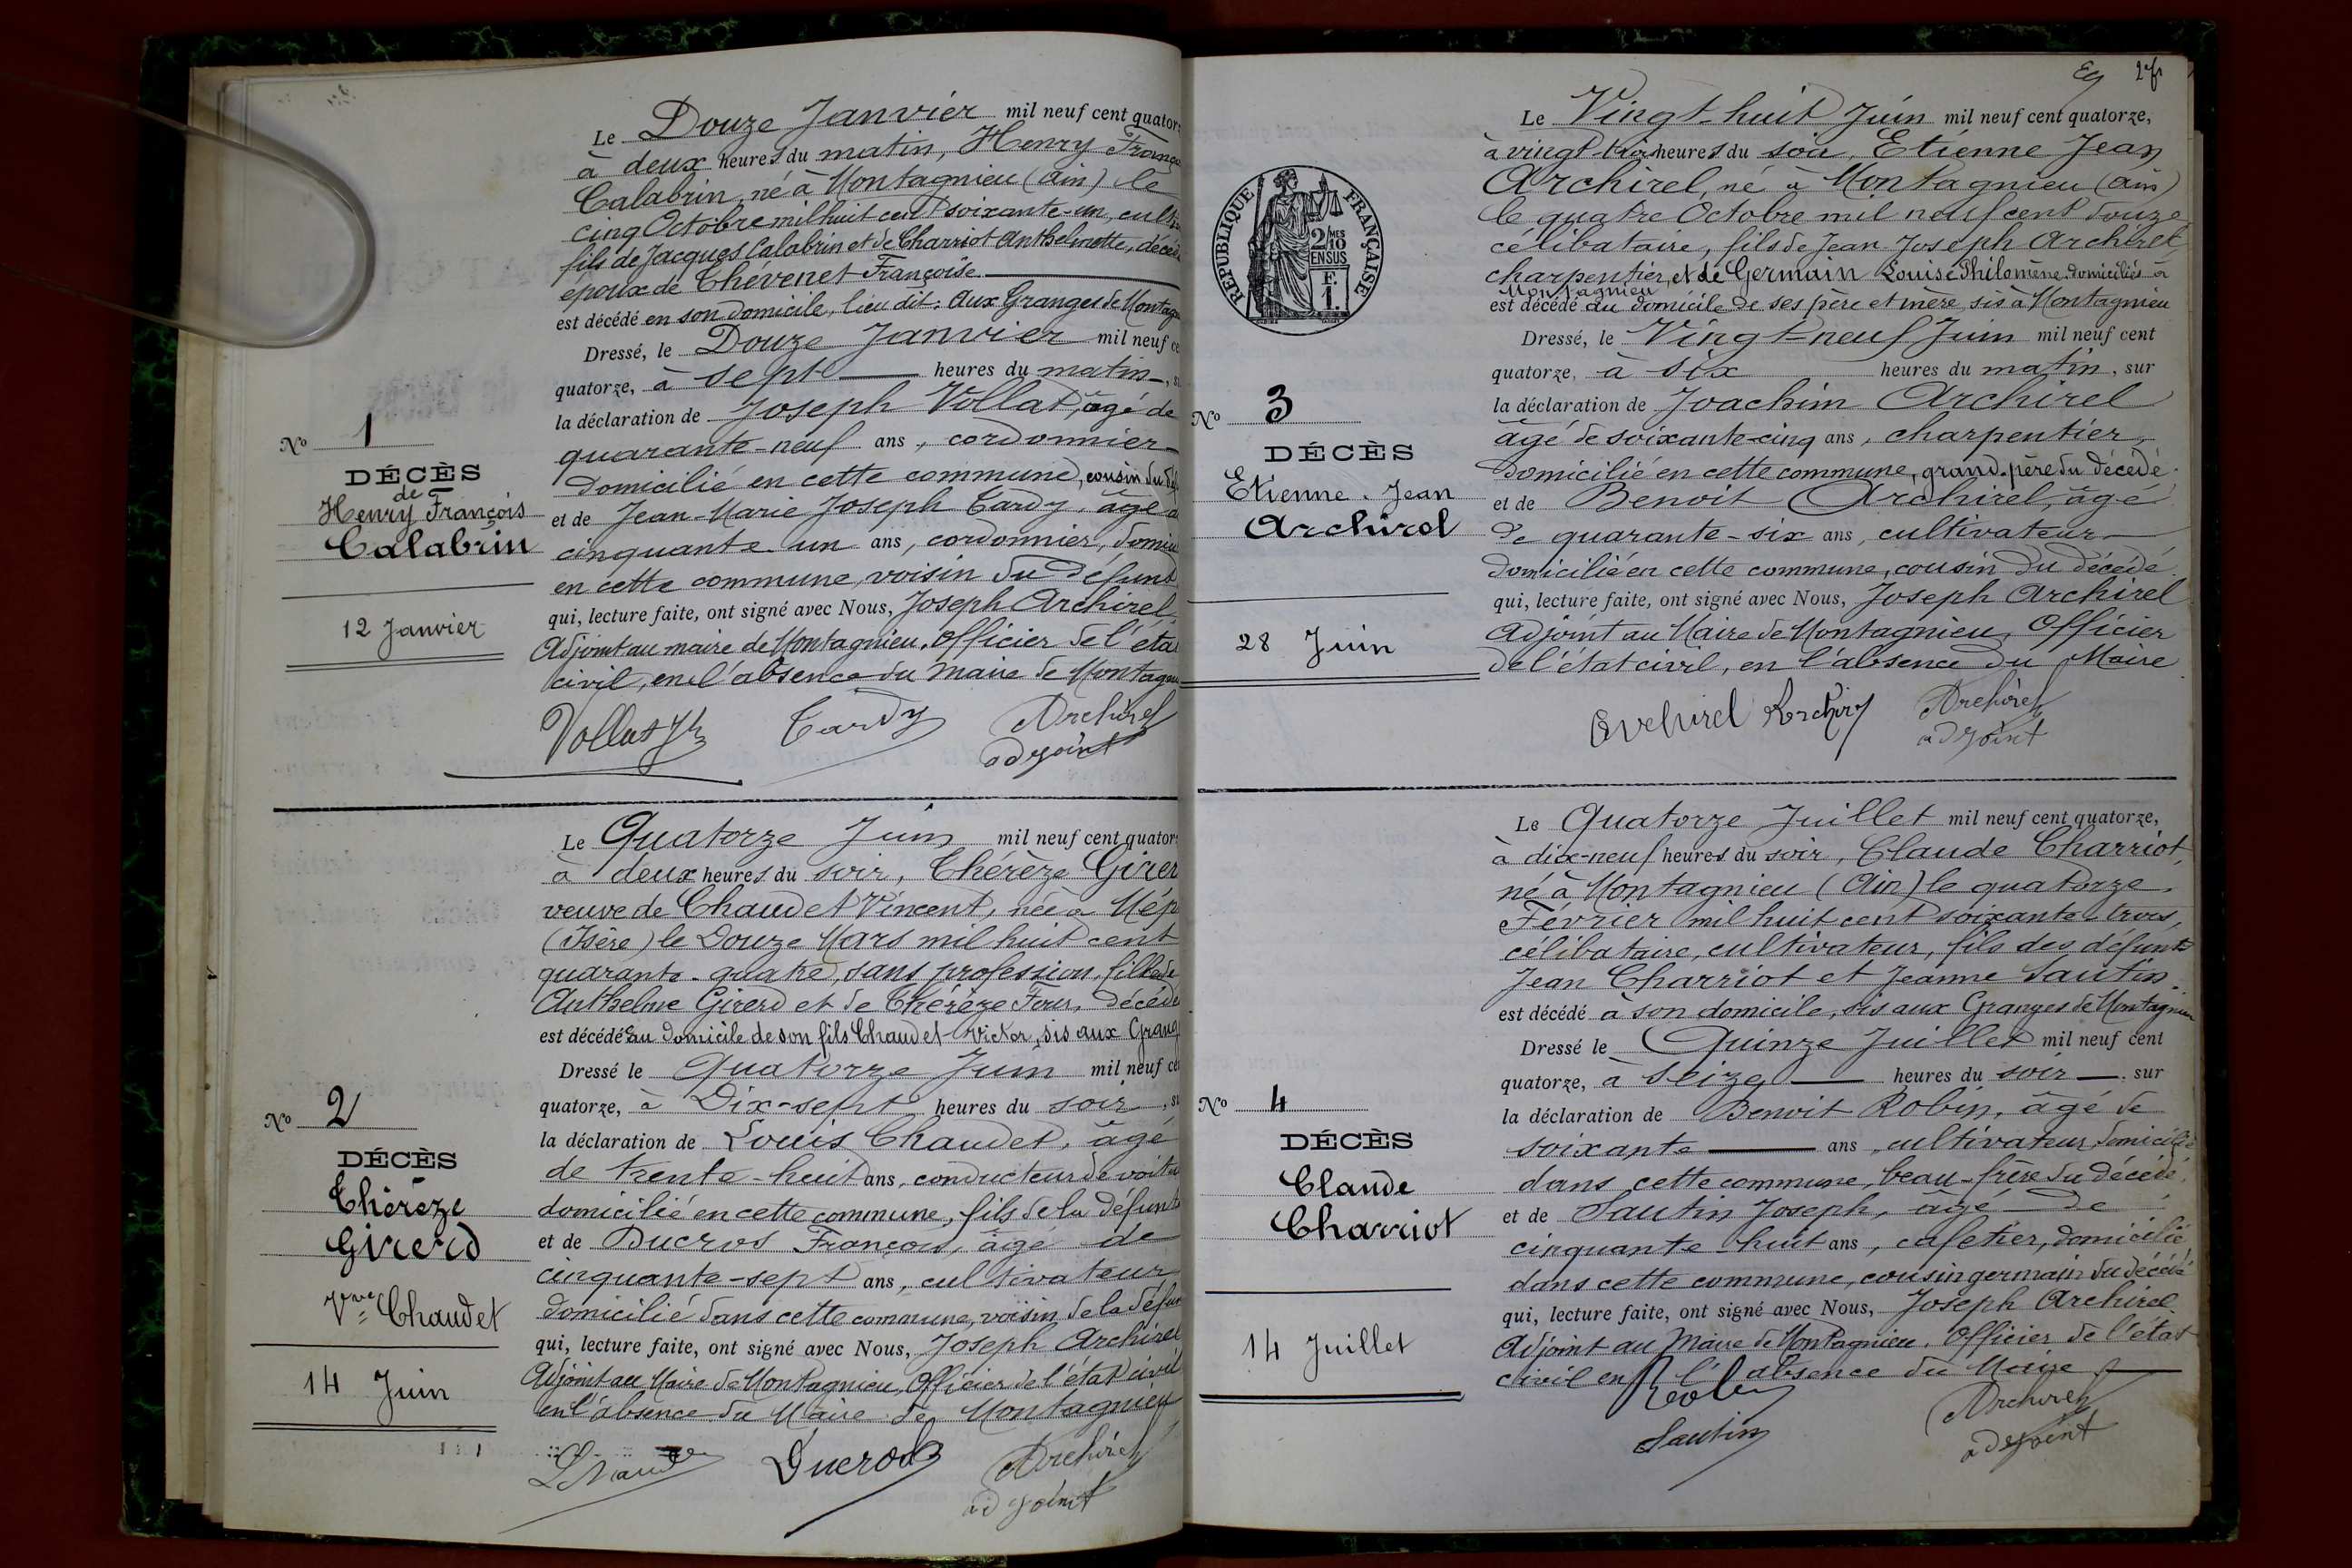 Le Douze Janvier mil neuf cent quator
à deux heures du matin, Henry Franço
Calabrin, né à Montagnieu (Ain) le
cinq Octobre mil huit cent soixante-un, culti
fils de Jacques Calabrin et de Charriot Anthelmette, décéd
époux de Thévenet Françoise
est décédé en son domicile, lieu dit: Aux Granges de Montag
Dressé, le Douze Janvier mil neuf ce
quatorze, à sept heures du matin, s
la déclaration de Joseph Vollat, âgé de
quarante-neuf ans, cordonnier
domicilié en cette commune, cousin du
et de Jean-Marie Joseph Cardy, âgé d
cinquante-un ans, cordonnier, domici
en cette commune, voisin du défunt
qui, lecture faite, ont signé avec Nous, Joseph Archirel
Adjoint au maire de Montagnieu, Officier de l'éta
civil, en l'absence du Maire de Montagni
Vollat Jh Cardy Archirel
adjoint
No 1
DÉCÈS
de
Henry François
Calabrin
12 Janvier
Le Quatorze Juin mil neuf cent quator
à deux heures du soir, Thérèze Girer
veuve de Chaudet Vincent, née à Mép
(Isère) le Douze Mars mil huit cent
quarante-quatre, sans profession, fille de
Anthelme Girerd et de Thérèze, décéde
est décédée au domicile de son fils Chaudet Victor, sis aux Grang
Dressé le Quatorze Juin mil neuf ce
quatorze, à Dix-sept heures du soir, su
la déclaration de Louis Chaudet, âgé
de trente-huit ans, conducteur de voitu
domicilié en cette commune, fils de la défunte
et de Ducros François, âgé de
cinquante-sept ans, cultivateur
domicilié dans cette commune, voisin de la défun
qui, lecture faite, ont signé avec Nous, Joseph Archirel
Adjoint au Maire de Montagnieu, Officier de l'état civil
en l'absence du Maire de Montagnieu
Ducros Archirel
adjoint
No 2
DÉCÈS
Thérèze
Girerd
Vve Chaudet
14 Juin
Le Vingt-huit Juin mil neuf cent quatorze,
à vingt-trois heures du soir, Etienne Jean
Archirel, né à Montagnieu (Ain)
le quatre Octobre mil neuf cent douze
célibataire, fils de Jean Joseph Archirel,
charpentier, et de Germain Louise Philomène, domiciliés à
Montagnieu
est décédé au domicile de ses père et mère, sis à Montagnieu
Dressé, le Vingt-neuf Juin mil neuf cent
quatorze, à six heures du matin, sur
la déclaration de Joachim Archirel
âgé de soixante-cinq ans, charpentier,
domicilié en cette commune, grand-père du décédé
et de Benoit Archirel, âgé
de quarante-six ans, cultivateur
domicilié en cette commune, cousin du décédé
qui, lecture faite, ont signé avec Nous, Joseph Archirel
Adjoint au Maire de Montagnieu, Officier
de l'état civil, en l'absence du Maire
Archirel Archirel
adjoint
RÉPUBLIQUE FRANÇAISE
2 MES
10
EN SUS
F.
1.
No 3
DÉCÈS
Etienne-Jean
Archirel
28 Juin
Le Quatorze Juillet mil neuf cent quatorze,
à dix-neuf heures du soir, Claude Charriot,
né à Montagnieu (Ain) le quatorze
Février mil huit cent soixante-trois,
célibataire, cultivateur, fils des défunts
Jean Charriot et Jeanne Sautin.
est décédé à son domicile, sis aux Granges de Montagnieu
Dressé le Quinze Juillet mil neuf cent
quatorze, à seize heures du soir, sur
la déclaration de Benoit Robin, âgé de
soixante ans, cultivateur domicilié
dans cette commune, beau-frère du décédé,
et de Sautin Joseph, âgé de
cinquante-huit ans, cafetier, domicilié
dans cette commune, cousin germain du décédé
qui, lecture faite, ont signé avec Nous, Joseph Archirel
Adjoint au Maire de Montagnieu, Officier de l'état
civil en l'absence du Maire
Archirel
Sautin adjoint
No 4
DÉCÈS
Claude
Charriot
14 Juillet